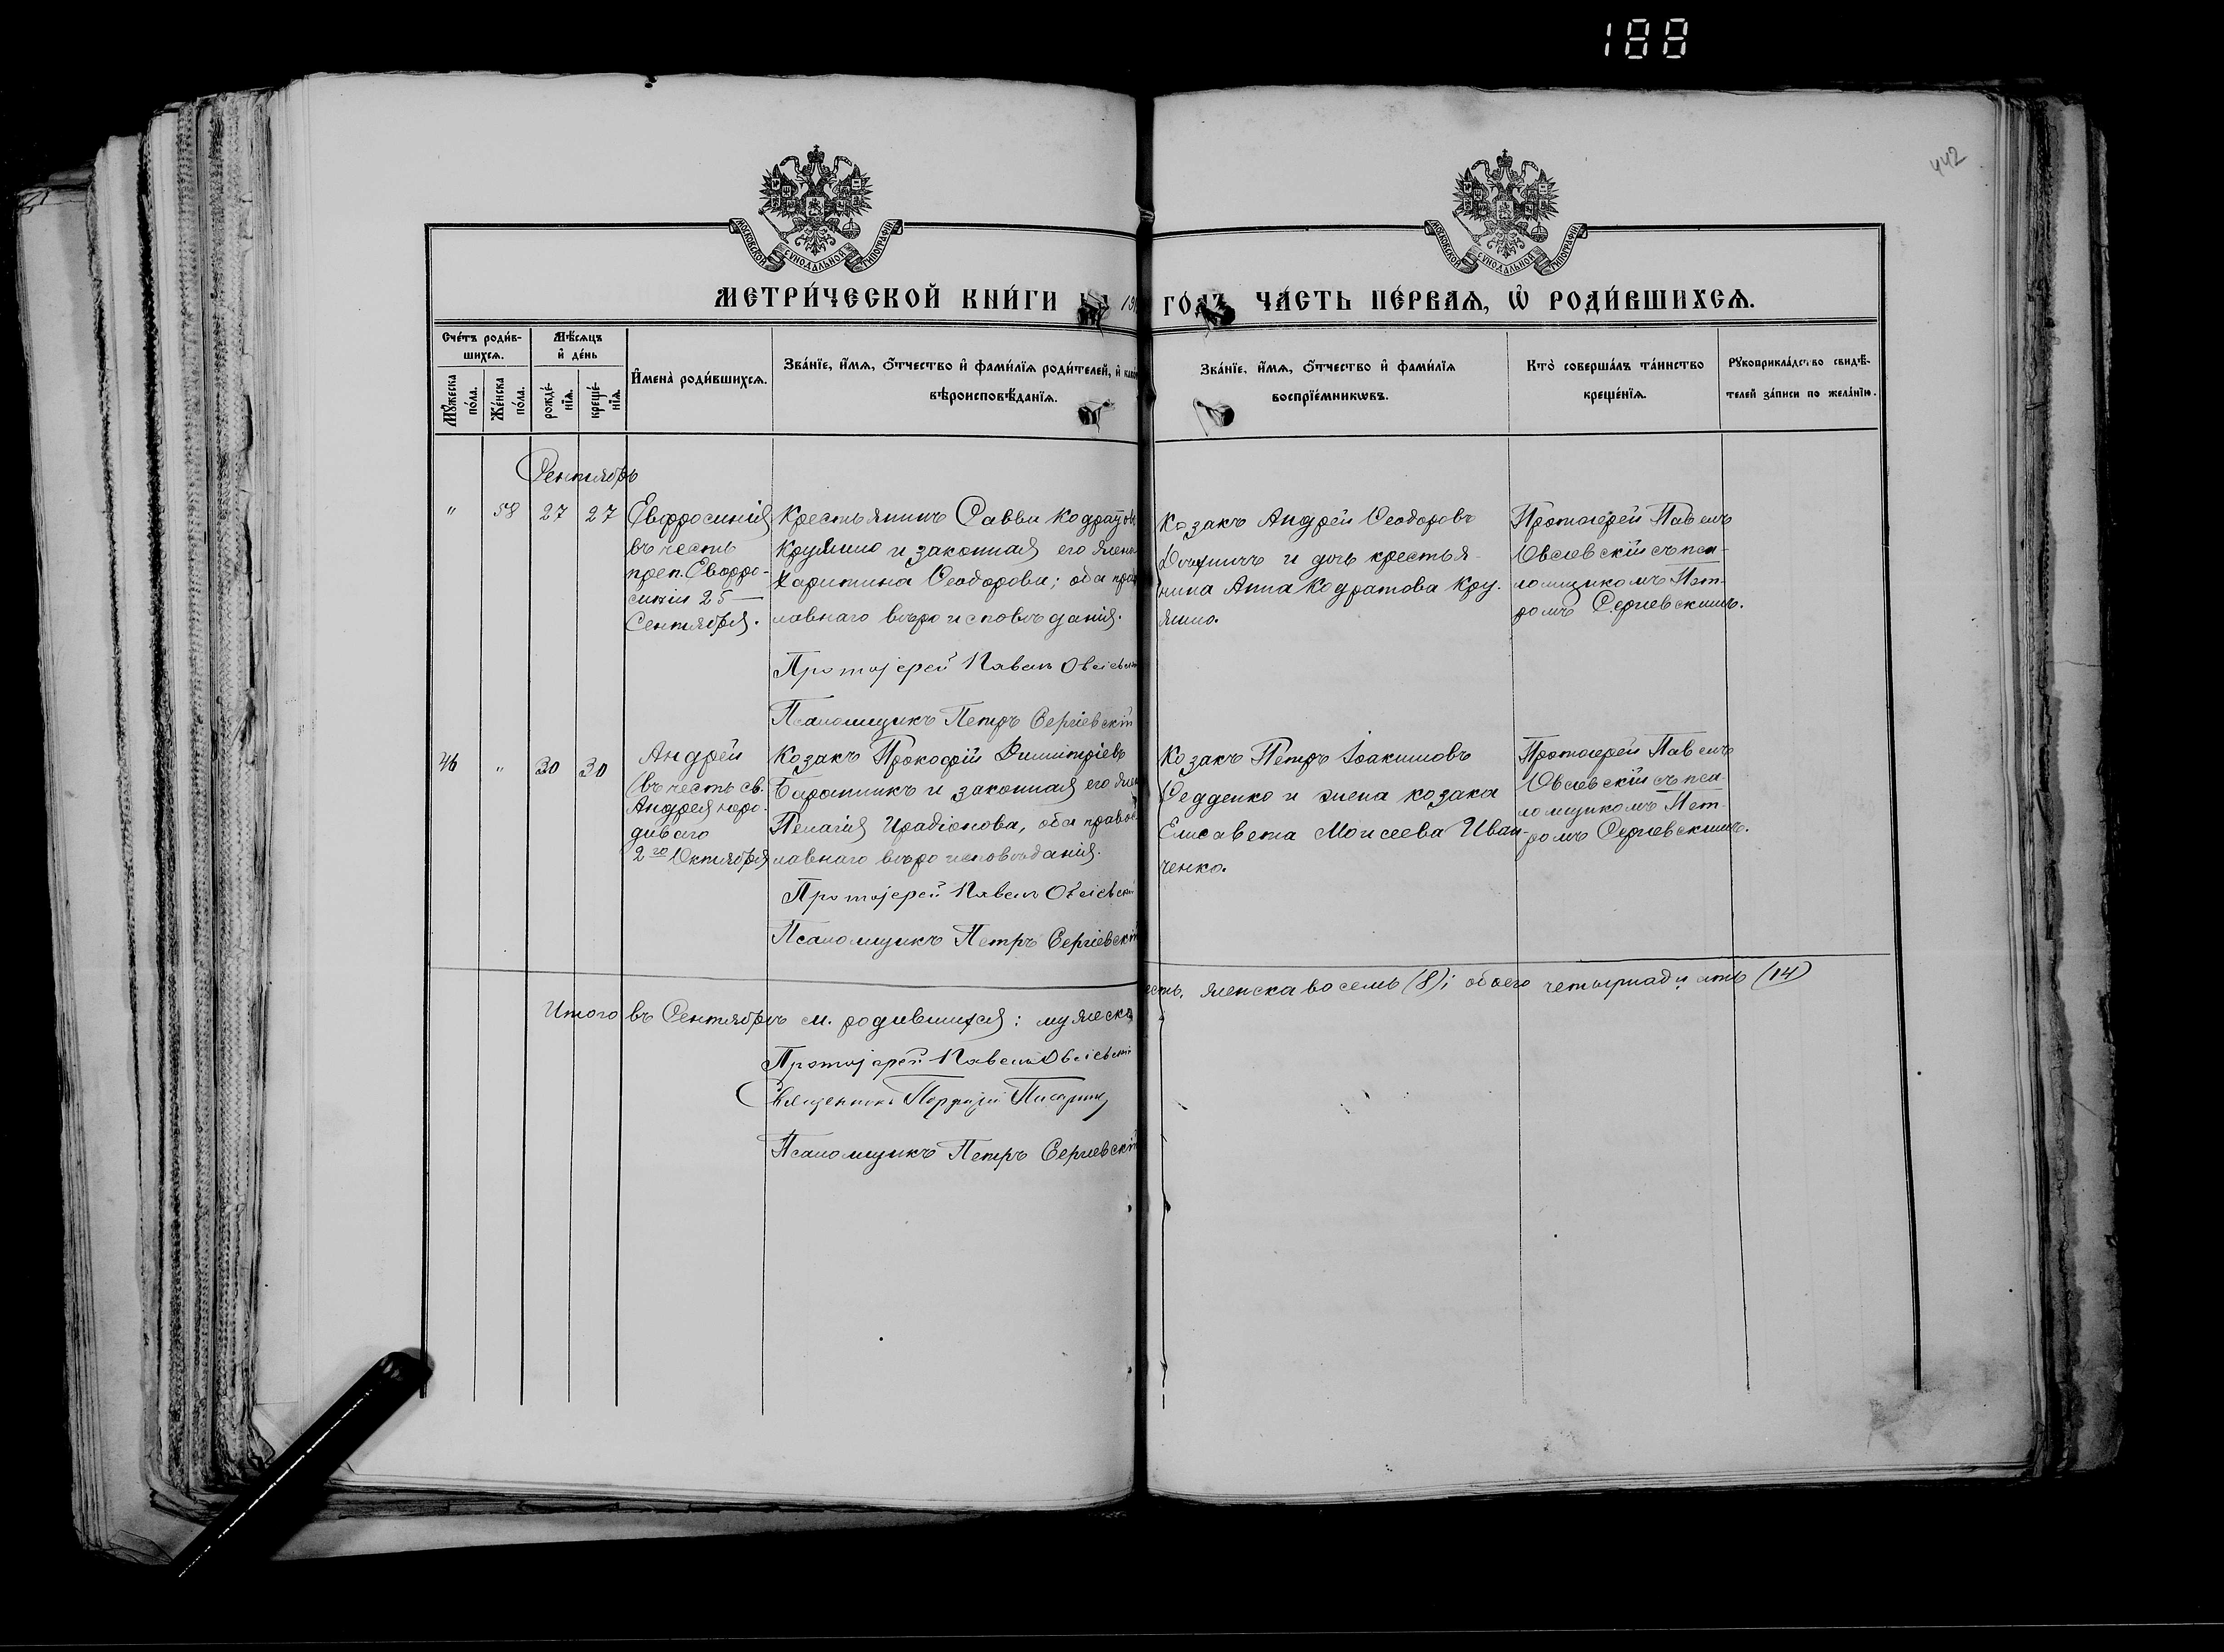 188
442
МОСКОВСКОЙ СУНОДАЛЬНОЙ ТИПОГРАФІИ
МОСКОВСКОЙ СУНОДАЛЬНОЙ ТИПОГРАФІИ
МЕТРИ́ЧЕСКОЙ КНИ́ГИ ГО́ДЪ ЧА́СТЬ ПЕ́РВАѦ, Ѡ҆ РОДИ́ВШИХСѦ.
Сче́тъ роди́в-
шихсѧ.
Мꙋ́жеска по́ла.
Же́нска по́ла.
Мѣ́сѧцъ
и҆ де́нь
рожде́-
нїѧ.
креще́-
нїѧ.
И҆мена̀ роди́вшихсѧ.
Зва́нїе, и҆́мѧ, ѻ҆́тчество и҆ фами́лїѧ роди́телей, и҆
вѣроисповѣ́данїѧ.
Зва́нїе, и҆́мѧ, ѻ҆́тчество и҆ фами́лїѧ
воспрїе́мникѡвъ.
Кто̀ соверша́лъ та́инство
креще́нїѧ.
Рꙋкоприкла́дство свидѣ́-
телей за́писи по жела́нїю.
Сентябрь
" 58 27 27
Евфросинія
въ честь
преп. Евфро-
синіи 25
Сентября.
Крестьянинъ Савва
и законная его жена
Харитина Ѳеодорова; оба прав
лавнаго вѣроисповѣданія.
Протоіерей Павелъ Овсіевскій
Псаломщикъ Петръ Сергіевскій
Козакъ Андрей Ѳеодоровъ
и дочь крестья-
нина Анна Кодратова Кру-
Протоіерей Павелъ
Овсіевскій съ пса-
ломщикомъ Пет-
ромъ Сергіевскимъ.
46 " 30 30
Андрей
(въ честь св.
Андрея юро-
диваго
2го Октября
Козакъ Прокофій Димитріевъ
и законная его жена
Пелагія Ирадіонова, оба правос
лавнаго вѣроисповѣданія.
Протоіерей Павелъ Овсіевскій
Псаломщикъ Петръ Сергіевскій
Козакъ Петръ Іоакимовъ
и жена козака
Елисавета Моисеева Иван-
ченко.
Протоіерей Павелъ
Овсіевскій съ пса-
ломщикомъ Пет-
ромъ Сергіевскимъ.
Итого въ Сентябрѣ м. родившихся: мужеска
есть, женска восемь (8); обоего четырнадцать (14)
Протоіерей Павелъ Овсіевскій
Священникъ Порфирій
Псаломщикъ Петръ Сергіевскій